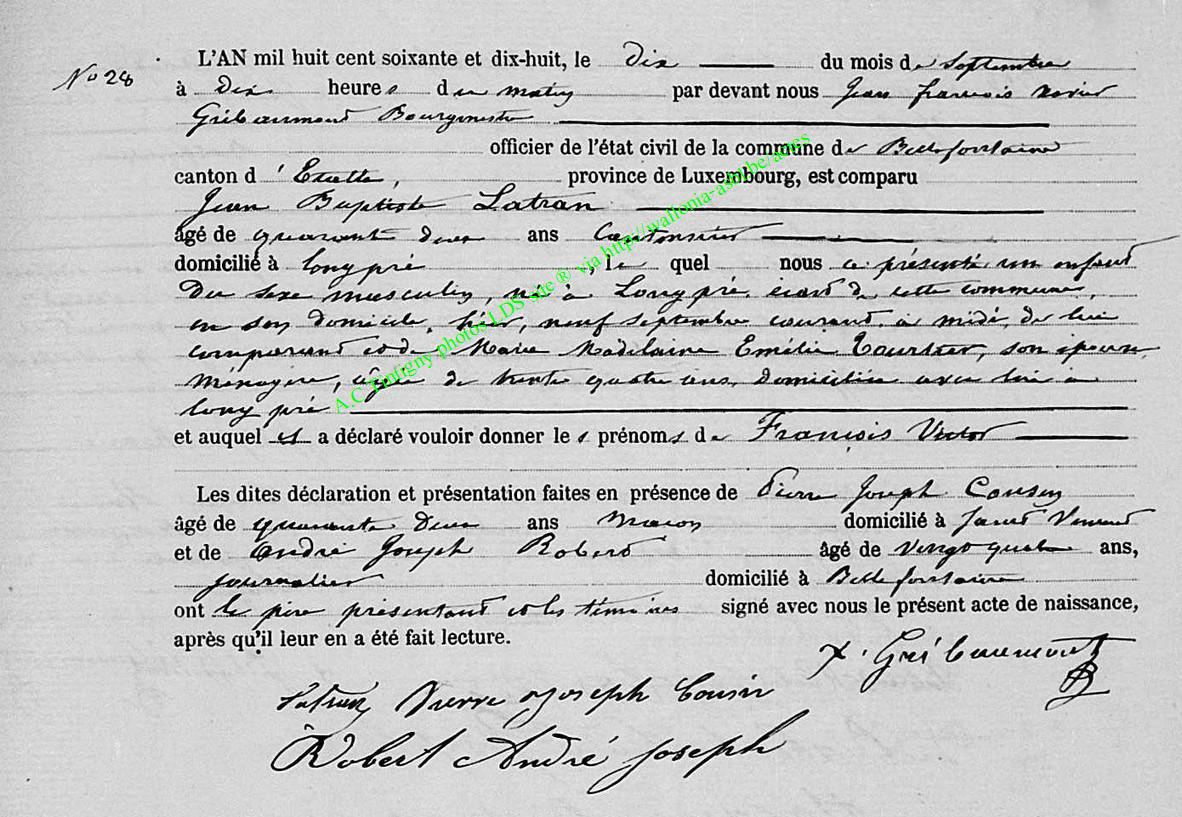 No 28
L'AN mil huit cent soixante et dix-huit, le Dix du mois de Septembre
à Dix heures du matin par devant nous Jean François Xavier
Gribaumont Bourgmestre
officier de l'état civil de la commune de Bellefontaine
canton d'Etalle, province de Luxembourg, est comparu
Jean Baptiste Latran
âgé de quarante deux ans Cantonnier
domicilié à Longpré, lequel nous a présenté un enfant
Du sexe masculin, né à Longpré, écart de cette commune,
en son domicile, hier, neuf septembre courant, à midi, de lui
comparant et de Marie Madelaine Emélie son épouse,
Ménagère, âgée de trente quatre ans, domiciliée avec lui à
long pré
et auquel il a déclaré vouloir donner les prénoms de François Victor
Les dites déclaration et présentation faites en présence de Pierre Joseph Cousin
âgé de quarante Deux ans Maçon domicilié à Saint Vincent
et de André Joseph Robert âgé de vingt quatre ans,
journalier domicilié à Bellefontaine
ont le père présentant et les témoins signé avec nous le présent acte de naissance,
après qu'il leur en a été fait lecture.
X. Gribaumont
Latran Pierre Joseph Cousin
Robert André Joseph
A.C Tintigny photos LDS site ® via http://wallonia-asbl.be/actes